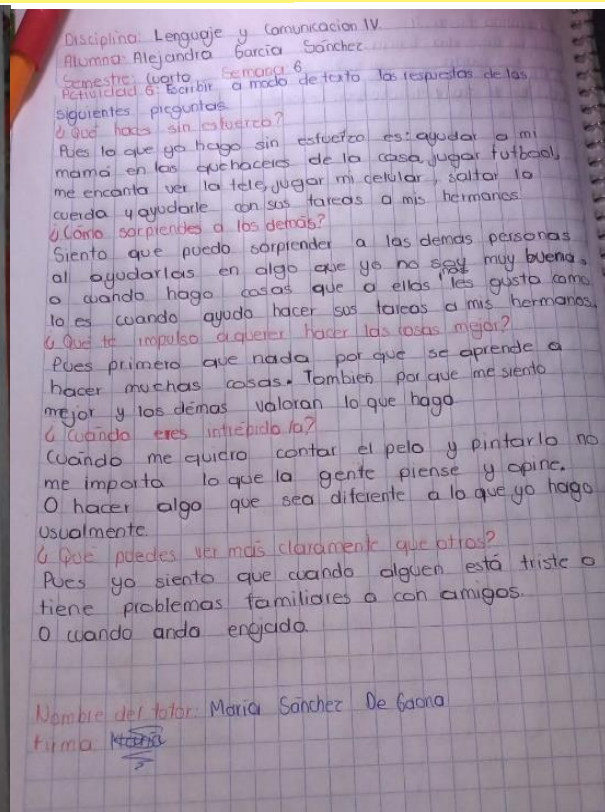 Disciplina: Lenguaje y Comunicacion IV
Alumna: Alejandra Garcia Sánchez
Semestre: Cuarto Semana 6
Actividad 6: Escribir a modo de texto las respuestas de las
siguientes preguntas
¿Qué haces sin esfuerzo?
Pues lo que yo hago sin esfuerzo es: ayudar a mi
mamá en los quehaceres de la casa, jugar futbool,
me encanta ver la tele, jugar mi celular, saltar la
cuerda y ayudarle con sus tareas a mis hermanos
¿Cómo sorprendes a los demás?
Siento que puedo sorpiender a las demas personas
al ayudarlas en algo que yo no soy muy buena.
o cuando hago cosas que a ellos les gusta como
lo es cuando ayudo hacer sus tareas a mis hermanos.
¿Qué te impulsa a querer hacer las cosas mejor?
Pues primero que nada por que se aprende a
hacer muchas cosas. Tambien por que me siento
mejor y los démas valoran lo que hago
¿Cuándo eres intrépido/a?
Cuándo me quiero contar el pelo y pintarlo no
me importa lo que la gente piense y opine.
O hacer algo que sea diferente a lo que yo hago
usualmente.
¿Qué puedes ver más claramente que otros?
Pues yo siento que cuando alguen está triste o
tiene problemas familiares o con amigos.
O cuando ando enojada
Nombre del tutor: María Sánchez De Gaona
firma